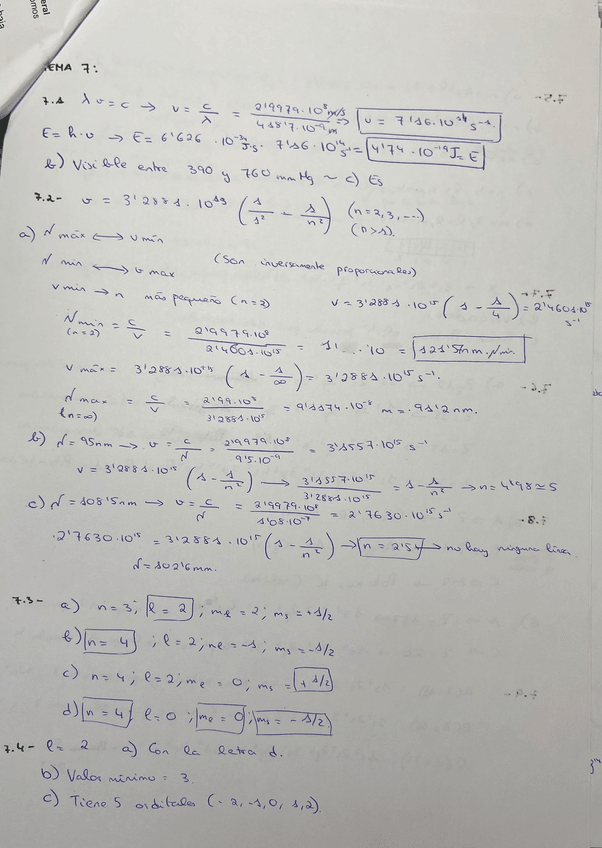 eral
omos
baja
TEMA 7:
7.1 λ υ = c → υ = c/λ = 2'9979·10⁸ m/s / 418'7·10⁻⁹ m ⇒ υ = 7'16·10¹⁴ s⁻¹
E = h·υ → E = 6'626·10⁻³⁴ J·s · 7'16·10¹⁴ s⁻¹ = 4'74·10⁻¹⁹ J = E
b) Visible entre 390 y 760 mmHg ~ c) Es
7.2- υ = 3'2881·10¹⁵ (1/1² - 1/n²) (n = 2, 3, ...)
(n > 1).
a) λ máx ⟷ υ mín
λ min ⟷ υ max (Son inversamente proporcionales)
υ min → n más pequeño (n=2) υ = 3'2881·10¹⁵ (1 - 1/4) = 2'4601·10¹⁵ s⁻¹
λ min (n=2) = c/υ = 2'9979·10⁸ / 2'4601·10¹⁵ = 1'...·10 = 121'57nm. λ min.
υ máx = 3'2881·10¹⁵ (1 - 1/∞) = 3'2881·10¹⁵ s⁻¹.
λ max (n=∞) = c/υ = 2'99·10⁸ / 3'2881·10¹⁵ = 9'1174·10⁻⁸ m = 91'2nm.
b) λ = 95nm → υ = c/λ = 2'9979·10⁸ / 9'5·10⁻⁸ = 3'1557·10¹⁵ s⁻¹
υ = 3'2881·10¹⁵ (1 - 1/n²) → 3'1557·10¹⁵ / 3'2881·10¹⁵ = 1 - 1/n² → n = 4'98 ≃ 5
c) λ = 108'5nm → υ = c/λ = 2'9979·10⁸ / 1'08·10⁻⁷ = 2'7630·10¹⁵ s⁻¹
·2'7630·10¹⁵ = 3'2881·10¹⁵ (1 - 1/n²) → n = 2'5 → no hay ninguna línea.
λ = 102'6mm.
7.3- a) n = 3; l = 2; mℓ = 2; ms = +1/2
b) n = 4; l = 2; mℓ = -1; ms = -1/2
c) n = 4; l = 2; mℓ = 0; ms = +1/2
d) n = 4, l = 0; mℓ = 0; ms = -1/2
7.4- l = 2 a) Con la letra d.
b) Valor mínimo = 3.
c) Tiene 5 orbitales (-2, -1, 0, 1, 2).